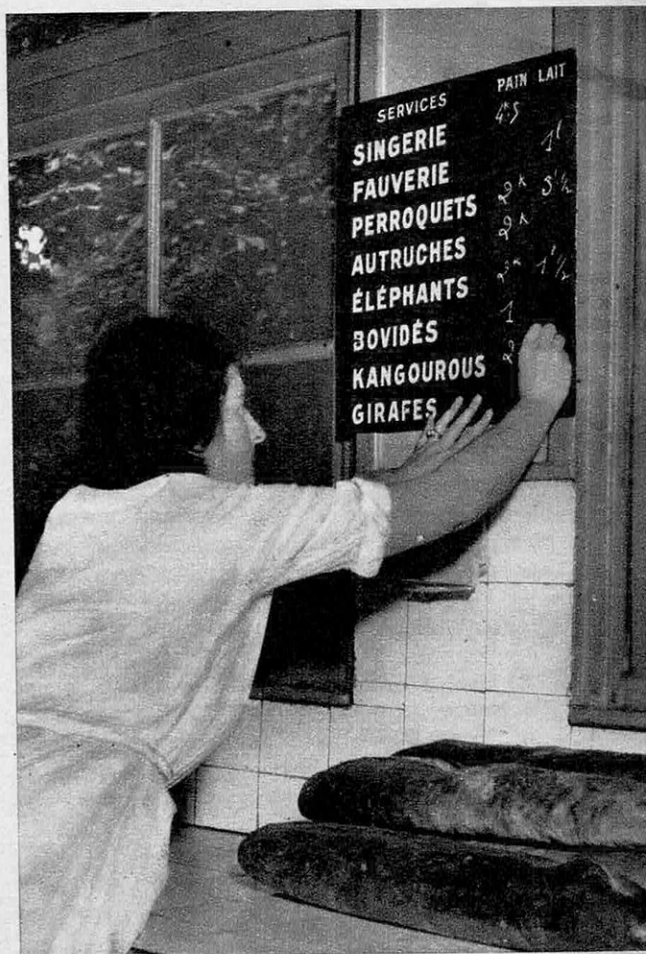 SERVICES PAIN LAIT
SINGERIE 4k5
FAUVERIE 1l
PERROQUETS 2k
AUTRUCHES 2k
ÉLÉPHANTS 2k 1l1/2
BOVIDÉS 1
KANGOUROUS 2
GIRAFES